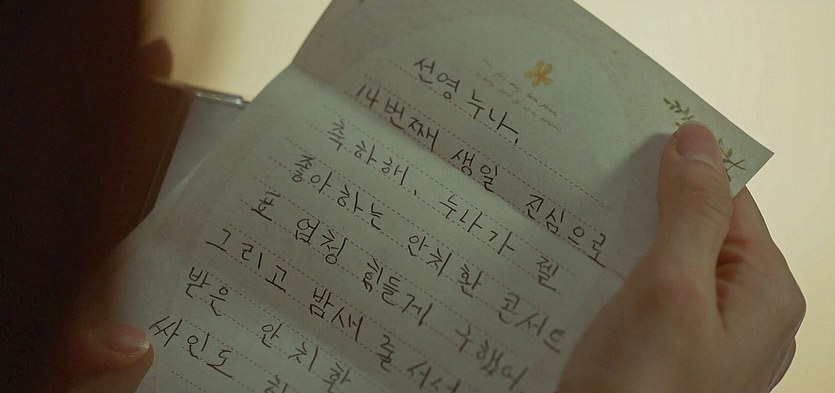 선영누나,
14번째 생일 진심으로
축하해. 누나가 젤
좋아하는 안치환 콘서트
표 엄청 힘들게 구했어
그리고 밤새 줄 서서
받은 안치환
싸인도